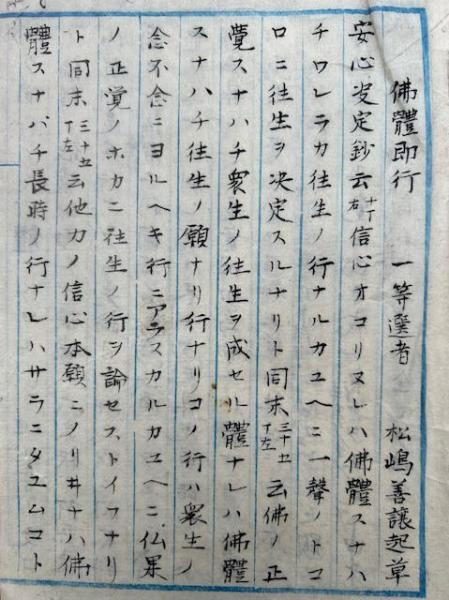 佛體即行　一等選者　松嶋善讓起草
安心决定鈔云十丁右信心オコリヌレハ佛體スナハ
チワレラカ往生ノ行ナルカユヘニ一聲ノトコ
ロニ往生ヲ决定スルナリト同末三十五丁左云佛ノ正
覺スナハチ衆生ノ往生ヲ成セル體ナレハ佛體
スナハチ往生ノ願ナリ行ナリコノ行ハ衆生ノ
念不念ニヨルヘキ行ニアラスカルカユヘニ仏果
ノ正覚ノホカニ往生ノ行ヲ論セストイフナリ
ト同末三十五丁左云他力ノ信心本願ニノリヰナハ佛
體スナバチ長時ノ行ナレハサラニタユムコト